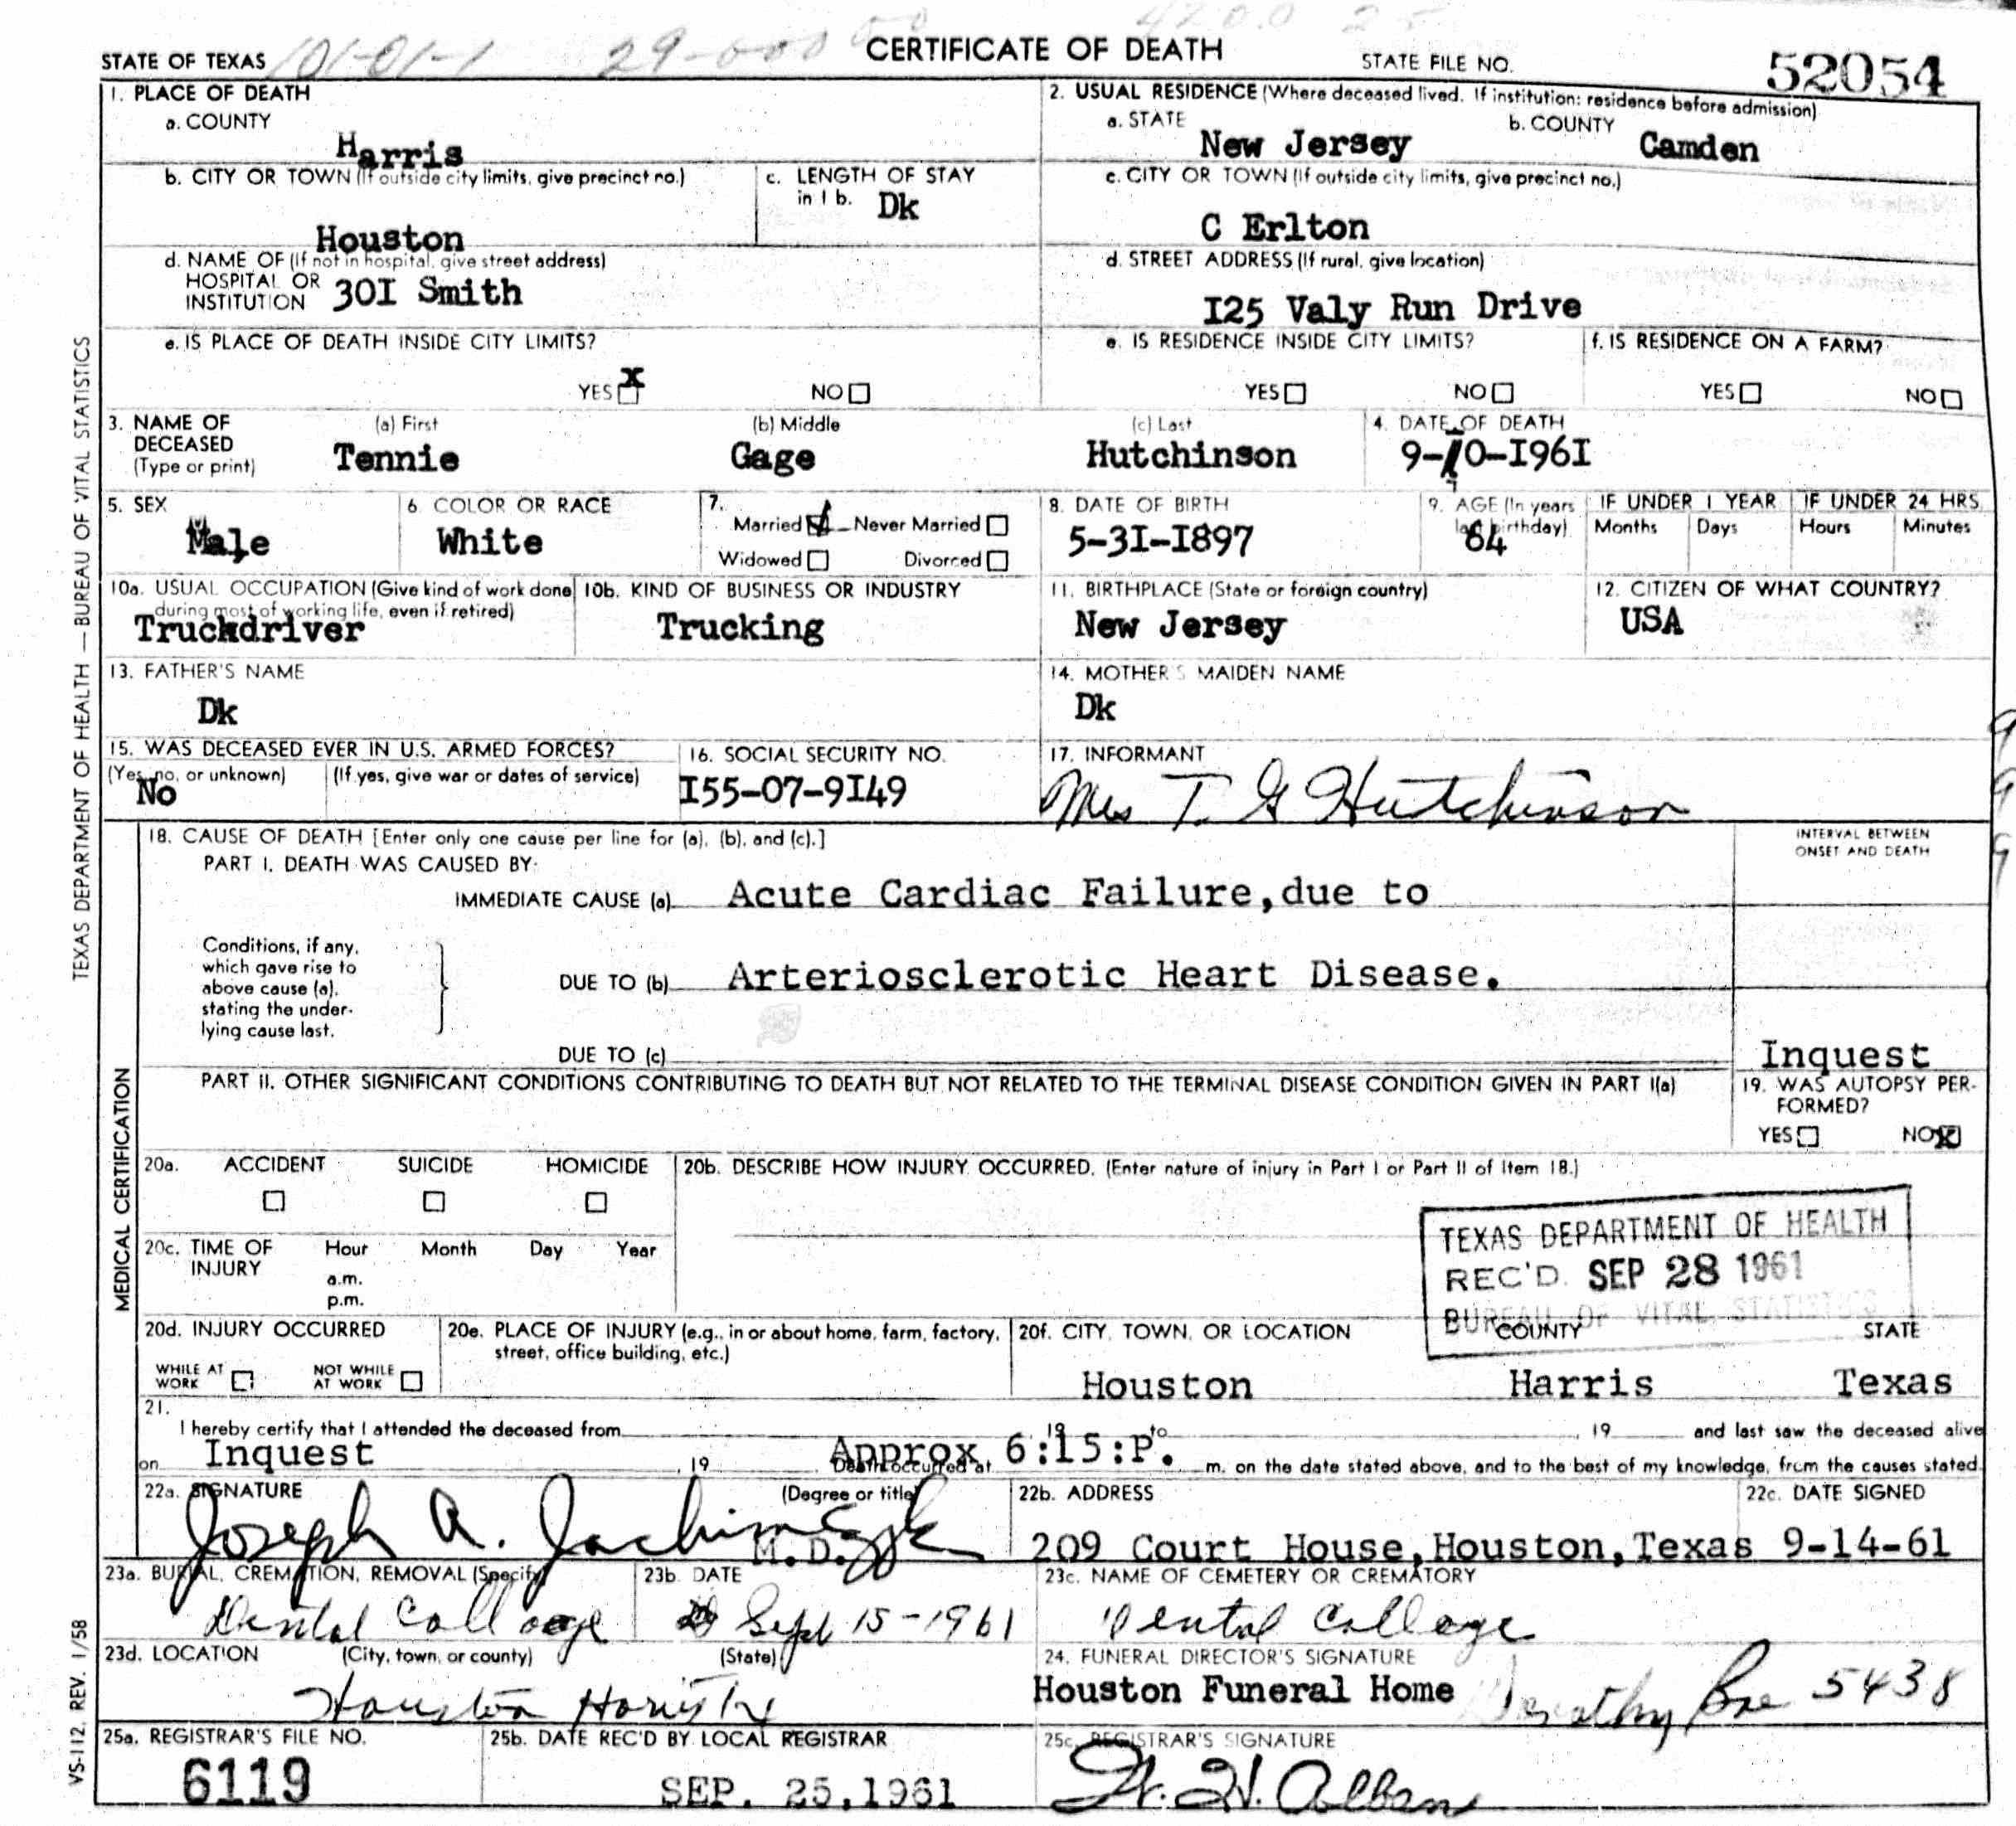 CERTIFICATE OF DEATH
STATE OF TEXAS 101-01-1 29-000
STATE FILE NO. 52054
1. PLACE OF DEATH
a. COUNTY
Harris
2. USUAL RESIDENCE (Where deceased lived. If institution: residence before admission)
a. STATE
New Jersey
b. COUNTY
Camden
b. CITY OR TOWN (If outside city limits, give precinct no.)
Houston
c. LENGTH OF STAY
in 1 b. Dk
c. CITY OR TOWN (If outside city limits, give precinct no.)
C Erlton
d. NAME OF (If not in hospital, give street address)
HOSPITAL OR
INSTITUTION 30I Smith
d. STREET ADDRESS (If rural, give location)
I25 Valy Run Drive
e. IS PLACE OF DEATH INSIDE CITY LIMITS?
YES X NO
e. IS RESIDENCE INSIDE CITY LIMITS?
YES NO
f. IS RESIDENCE ON A FARM?
YES NO
3. NAME OF
DECEASED
(Type or print)
(a) First
Tennie
(b) Middle
Gage
(c) Last
Hutchinson
4. DATE OF DEATH
9-10-I96I
5. SEX
Male
6. COLOR OR RACE
White
7.
Married Never Married
Widowed Divorced
8. DATE OF BIRTH
5-3I-I897
9. AGE (In years
last birthday)
64
IF UNDER 1 YEAR
Months Days
IF UNDER 24 HRS.
Hours Minutes
10a. USUAL OCCUPATION (Give kind of work done
during most of working life, even if retired)
Truckdriver
10b. KIND OF BUSINESS OR INDUSTRY
Trucking
11. BIRTHPLACE (State or foreign country)
New Jersey
12. CITIZEN OF WHAT COUNTRY?
USA
13. FATHER'S NAME
Dk
14. MOTHER'S MAIDEN NAME
Dk
15. WAS DECEASED EVER IN U.S. ARMED FORCES?
(Yes, no, or unknown) (If yes, give war or dates of service)
No
16. SOCIAL SECURITY NO.
I55-07-9I49
17. INFORMANT
Mrs T. G Hutchinson
18. CAUSE OF DEATH [Enter only one cause per line for (a), (b), and (c).]
INTERVAL BETWEEN
ONSET AND DEATH
PART I. DEATH WAS CAUSED BY:
IMMEDIATE CAUSE (a) Acute Cardiac Failure,due to
Conditions, if any,
which gave rise to
above cause (a),
stating the under-
lying cause last.
DUE TO (b) Arteriosclerotic Heart Disease.
DUE TO (c)
Inquest
PART II. OTHER SIGNIFICANT CONDITIONS CONTRIBUTING TO DEATH BUT NOT RELATED TO THE TERMINAL DISEASE CONDITION GIVEN IN PART I(a)
19. WAS AUTOPSY PER-
FORMED?
YES NO X
20a. ACCIDENT SUICIDE HOMICIDE
20b. DESCRIBE HOW INJURY OCCURRED. (Enter nature of injury in Part I or Part II of Item 18.)
TEXAS DEPARTMENT OF HEALTH
REC'D. SEP 28 1961
BUREAU OF VITAL STATISTICS
20c. TIME OF
INJURY
Hour Month Day Year
a.m.
p.m.
20d. INJURY OCCURRED
WHILE AT
WORK
NOT WHILE
AT WORK
20e. PLACE OF INJURY (e.g., in or about home, farm, factory,
street, office building, etc.)
20f. CITY, TOWN, OR LOCATION COUNTY STATE
Houston Harris Texas
21.
I hereby certify that I attended the deceased from 19 to , 19 and last saw the deceased alive
on Inquest , 19 . Death occurred at Approx 6:15:P. m. on the date stated above, and to the best of my knowledge, from the causes stated.
22a. SIGNATURE (Degree or title)
Joseph A. Jachimczyk M.D.
22b. ADDRESS
209 Court House,Houston,Texas
22c. DATE SIGNED
9-14-61
23a. BURIAL, CREMATION, REMOVAL (Specify)
Dental College
23b. DATE
Sept 15-1961
23c. NAME OF CEMETERY OR CREMATORY
Dental College
23d. LOCATION (City, town, or county) (State)
Houston Harris Tx
24. FUNERAL DIRECTOR'S SIGNATURE
Houston Funeral Home Dorothy 5438
25a. REGISTRAR'S FILE NO.
6119
25b. DATE REC'D BY LOCAL REGISTRAR
SEP. 25,1961
25c. REGISTRAR'S SIGNATURE
TEXAS DEPARTMENT OF HEALTH — BUREAU OF VITAL STATISTICS
MEDICAL CERTIFICATION
VS-112 REV. 1/58